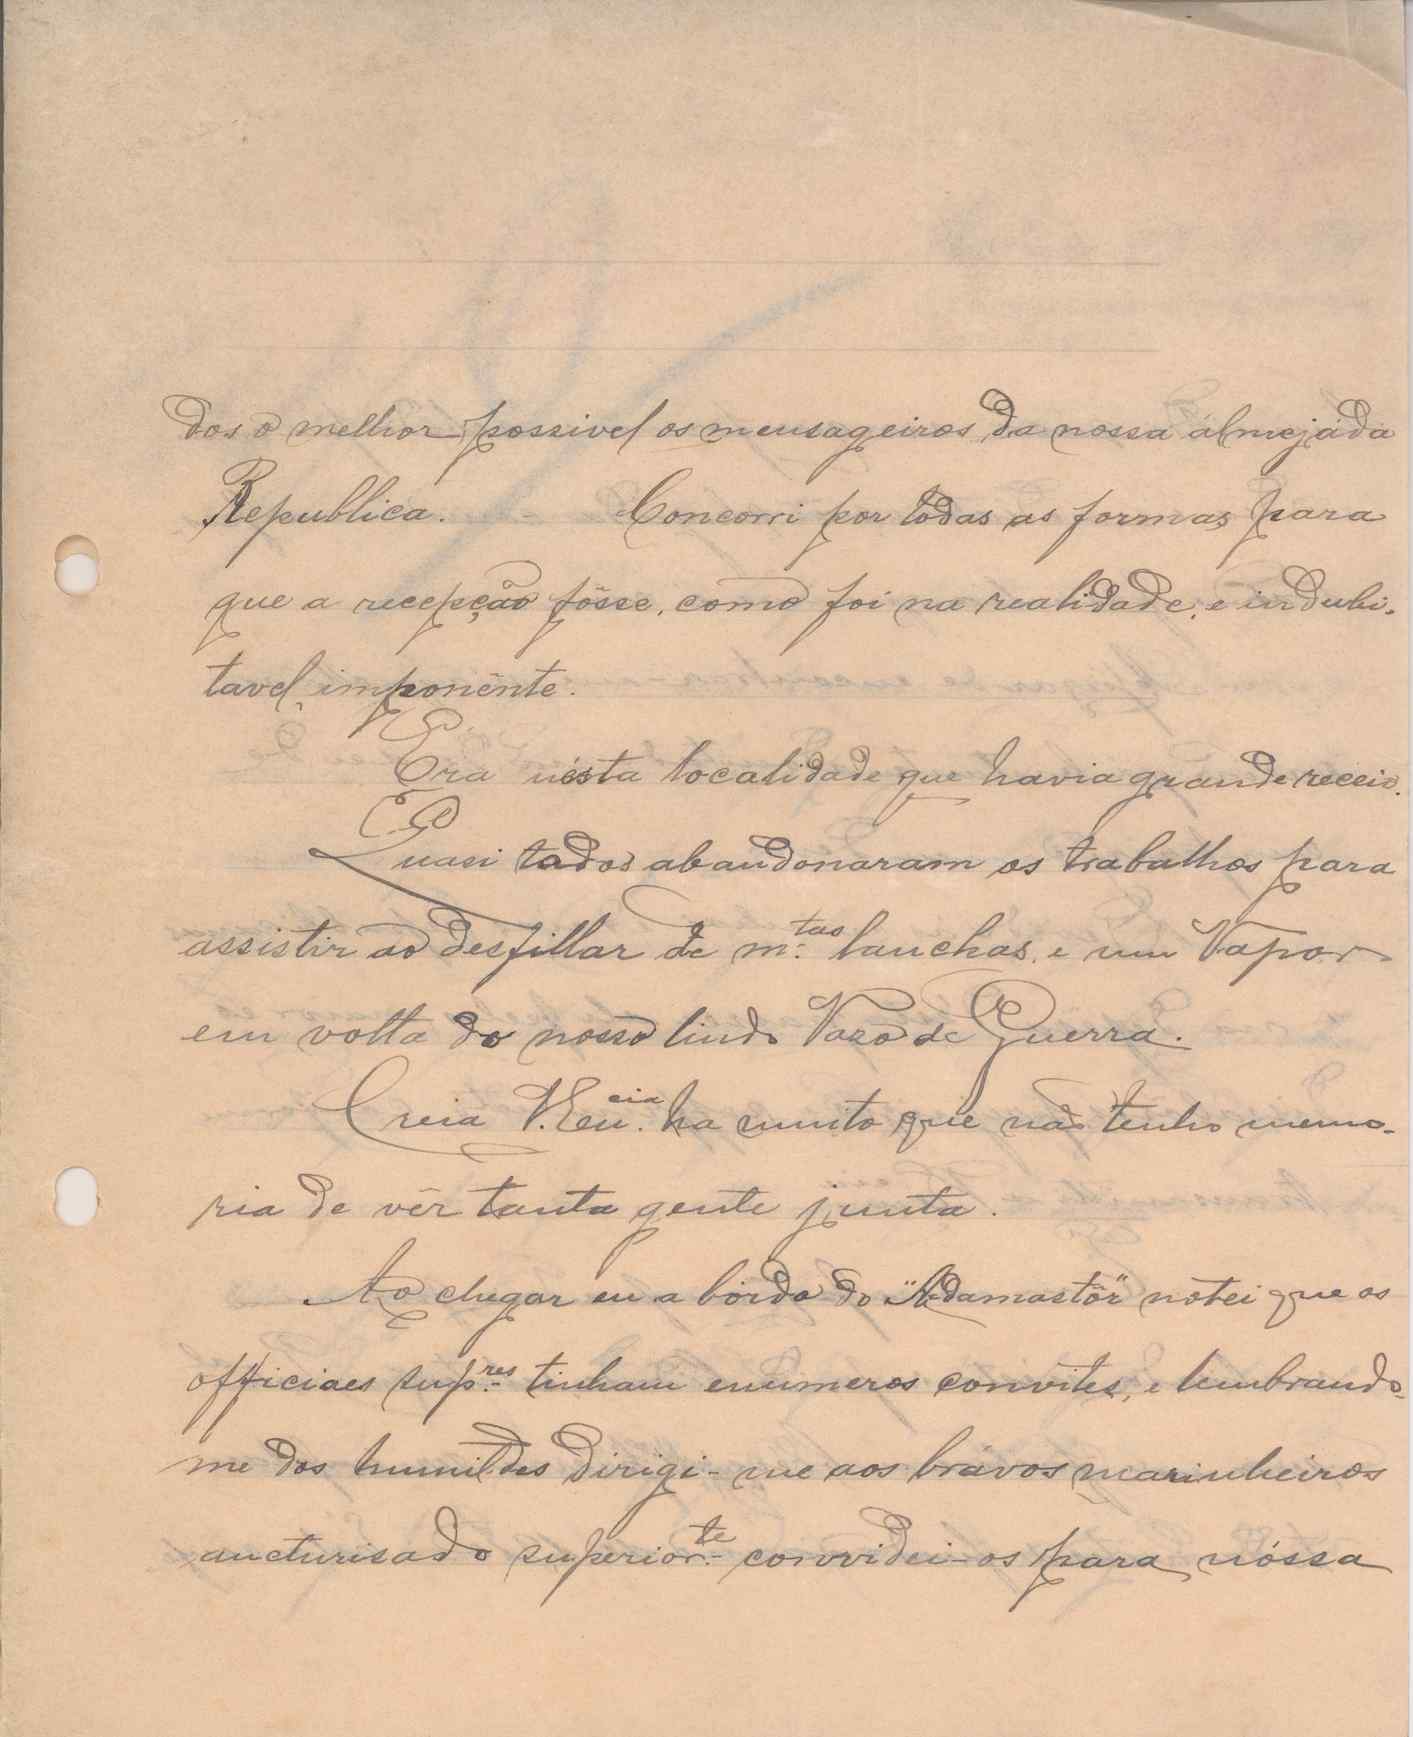 dos o melhor possivel os mensageiros da nossa álmejáda
Republica. - Concorri por todas as formas para
que a recepção fôsse, como foi na realidade, e indubi-
tavel, imponênte.
Era nésta localidade que havia grande receio.
Quasi todos abandonaram os trabalhos para
assistir ao desfillar de m.tas lanchas, e um Vapor
em volta do nosso lindo Vazo de Guerra.
Creia V. Eu.cia ha muito que não tenho memo-
ria de vêr tanta gente junta.
Ao chegar eu a bórdo do "Adamastôr" notei que os
officiaes sup.res tinham enumeros convites, e lembrando-
me dos humildes dirigi-me aos brávos marinheiros
aucturisado superior.te convidei-os para nóssa